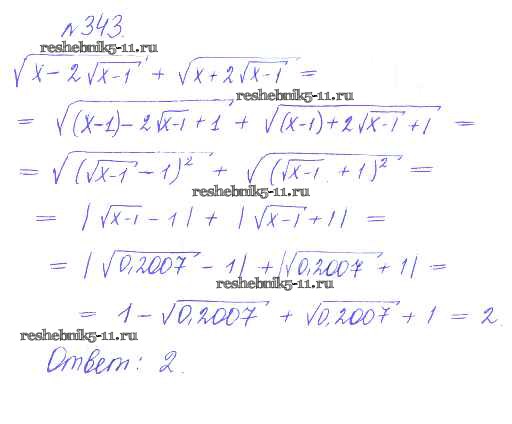 №343.
reshebnik5-11.ru
√(x-2√(x-1)) + √(x+2√(x-1)) =
reshebnik5-11.ru
= √((x-1)-2√(x-1)+1) + √((x-1)+2√(x-1)+1) =
= √((√(x-1) -1)²) + √((√(x-1) +1)²) =
reshebnik5-11.ru
= |√(x-1) -1| + |√(x-1) +1| =
= |√(0,2007) -1| + |√(0,2007) +1| =
reshebnik5-11.ru
= 1-√(0,2007) + √(0,2007) +1 = 2.
reshebnik5-11.ru
Ответ: 2.